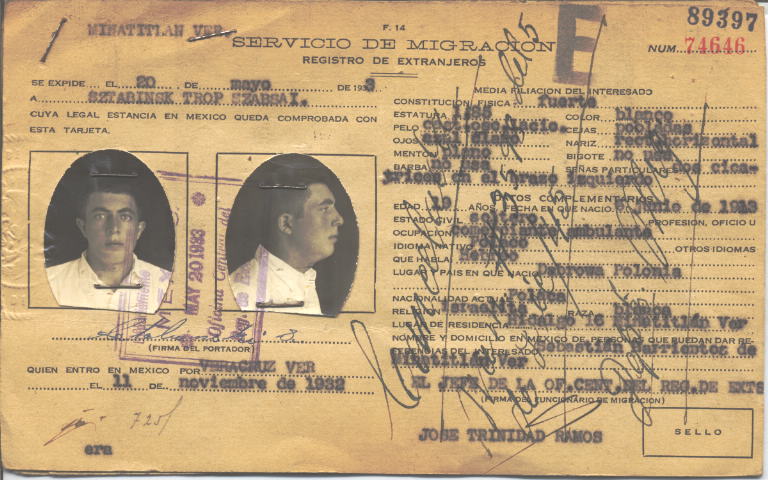 89397
MINATITLAN VER
F. 14
E
SERVICIO DE MIGRACION
NUM. 74646
REGISTRO DE EXTRANJEROS
SE EXPIDE EL 20 DE mayo DE 1933
A SZTABINSK TROP SZABSAI.
CUYA LEGAL ESTANCIA EN MEXICO QUEDA COMPROBADA CON
ESTA TARJETA.
MEDIA FILIACION DEL INTERESADO
CONSTITUCION FISICA fuerte
ESTATURA COLOR blanco
PELO CEJAS pobladas
OJOS NARIZ recta horisontal
MENTON plano BIGOTE no usa
BARBA no SEÑAS PARTICULARES dos cica-
trices en el brazo izquierdo
DATOS COMPLEMENTARIOS
EDAD 19 AÑOS, FECHA EN QUE NACIO junio de 1913
ESTADO CIVIL soltero PROFESION, OFICIO U
OCUPACION comerciante ambulante
IDIOMA NATIVO polaco OTROS IDIOMAS
QUE HABLA
LUGAR Y PAIS EN QUE NACIO Dabrowa Polonia
NACIONALIDAD ACTUAL Polaca
RELIGION Israelita RAZA blanca
LUGAR DE RESIDENCIA Hidalgo 16 Minatitlan Ver
NOMBRE Y DOMICILIO EN MEXICO DE PERSONAS QUE PUEDAN DAR RE-
FERENCIAS DEL INTERESADO Sebastian Barrientos de
Minatitlan Ver
MAY 20 1933
Oficina Central del
(FIRMA DEL PORTADOR)
QUIEN ENTRO EN MEXICO POR VERACRUZ VER
EL 11 DE noviembre de 1932
EL JEFE DE LA OF.CENT.DEL REG.DE EXTS
(FIRMA DEL FUNCIONARIO DE MIGRACION)
JOSE TRINIDAD RAMOS
SELLO
era